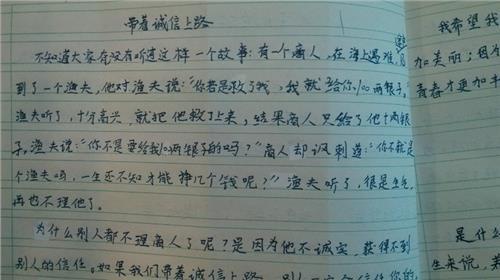 带着诚信上路
不知道大家有没有听过这样一个故事:有一个商人,在海上遇难,遇
到了一个渔夫,他对渔夫说:“你若是救了我,我就给你100两银子。”
渔夫听了,十分高兴,就把他救了上来,结果商人只给了他十两银
子。渔夫说:“你不是要给我100两银子的吗?”商人却讽刺道:“你不就是
个渔夫吗,一生还不知才能挣几个钱呢?”渔夫听了,很是生气,
再也不理他了。
为什么别人都不理商人了呢?是因为他不诚实,获得不到
别人的信任。如果我们带着诚信上路
我希望我
加美丽;因为
青春才更加
是什么
生来说